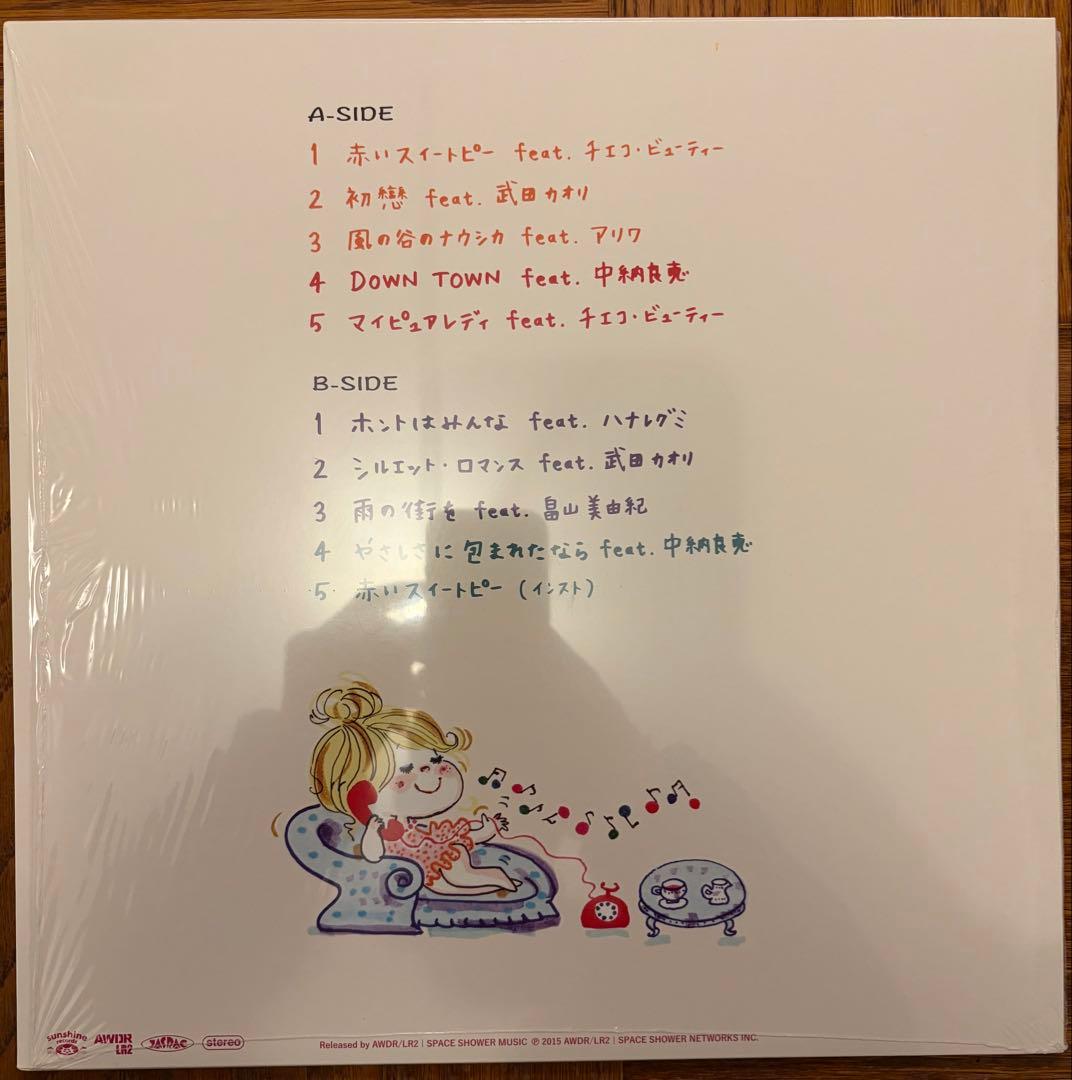 A-SIDE
1 赤いスイートピー feat. チエコ・ビューティー
2 初戀 feat. 武田カオリ
3 風の谷のナウシカ feat. アリワ
4 DOWN TOWN feat. 中納良恵
5 マイピュアレディ feat. チエコ・ビューティー
B-SIDE
1 ホントはみんな feat. ハナレグミ
2 シルエット・ロマンス feat. 武田カオリ
3 雨の街を feat. 畠山美由紀
4 やさしさに包まれたなら feat. 中納良恵
5 赤いスイートピー (インスト)
sunshine records AWDR LR2 JASRAC stereo
Released by AWDR/LR2 | SPACE SHOWER MUSIC ℗ 2015 AWDR/LR2 | SPACE SHOWER NETWORKS INC.